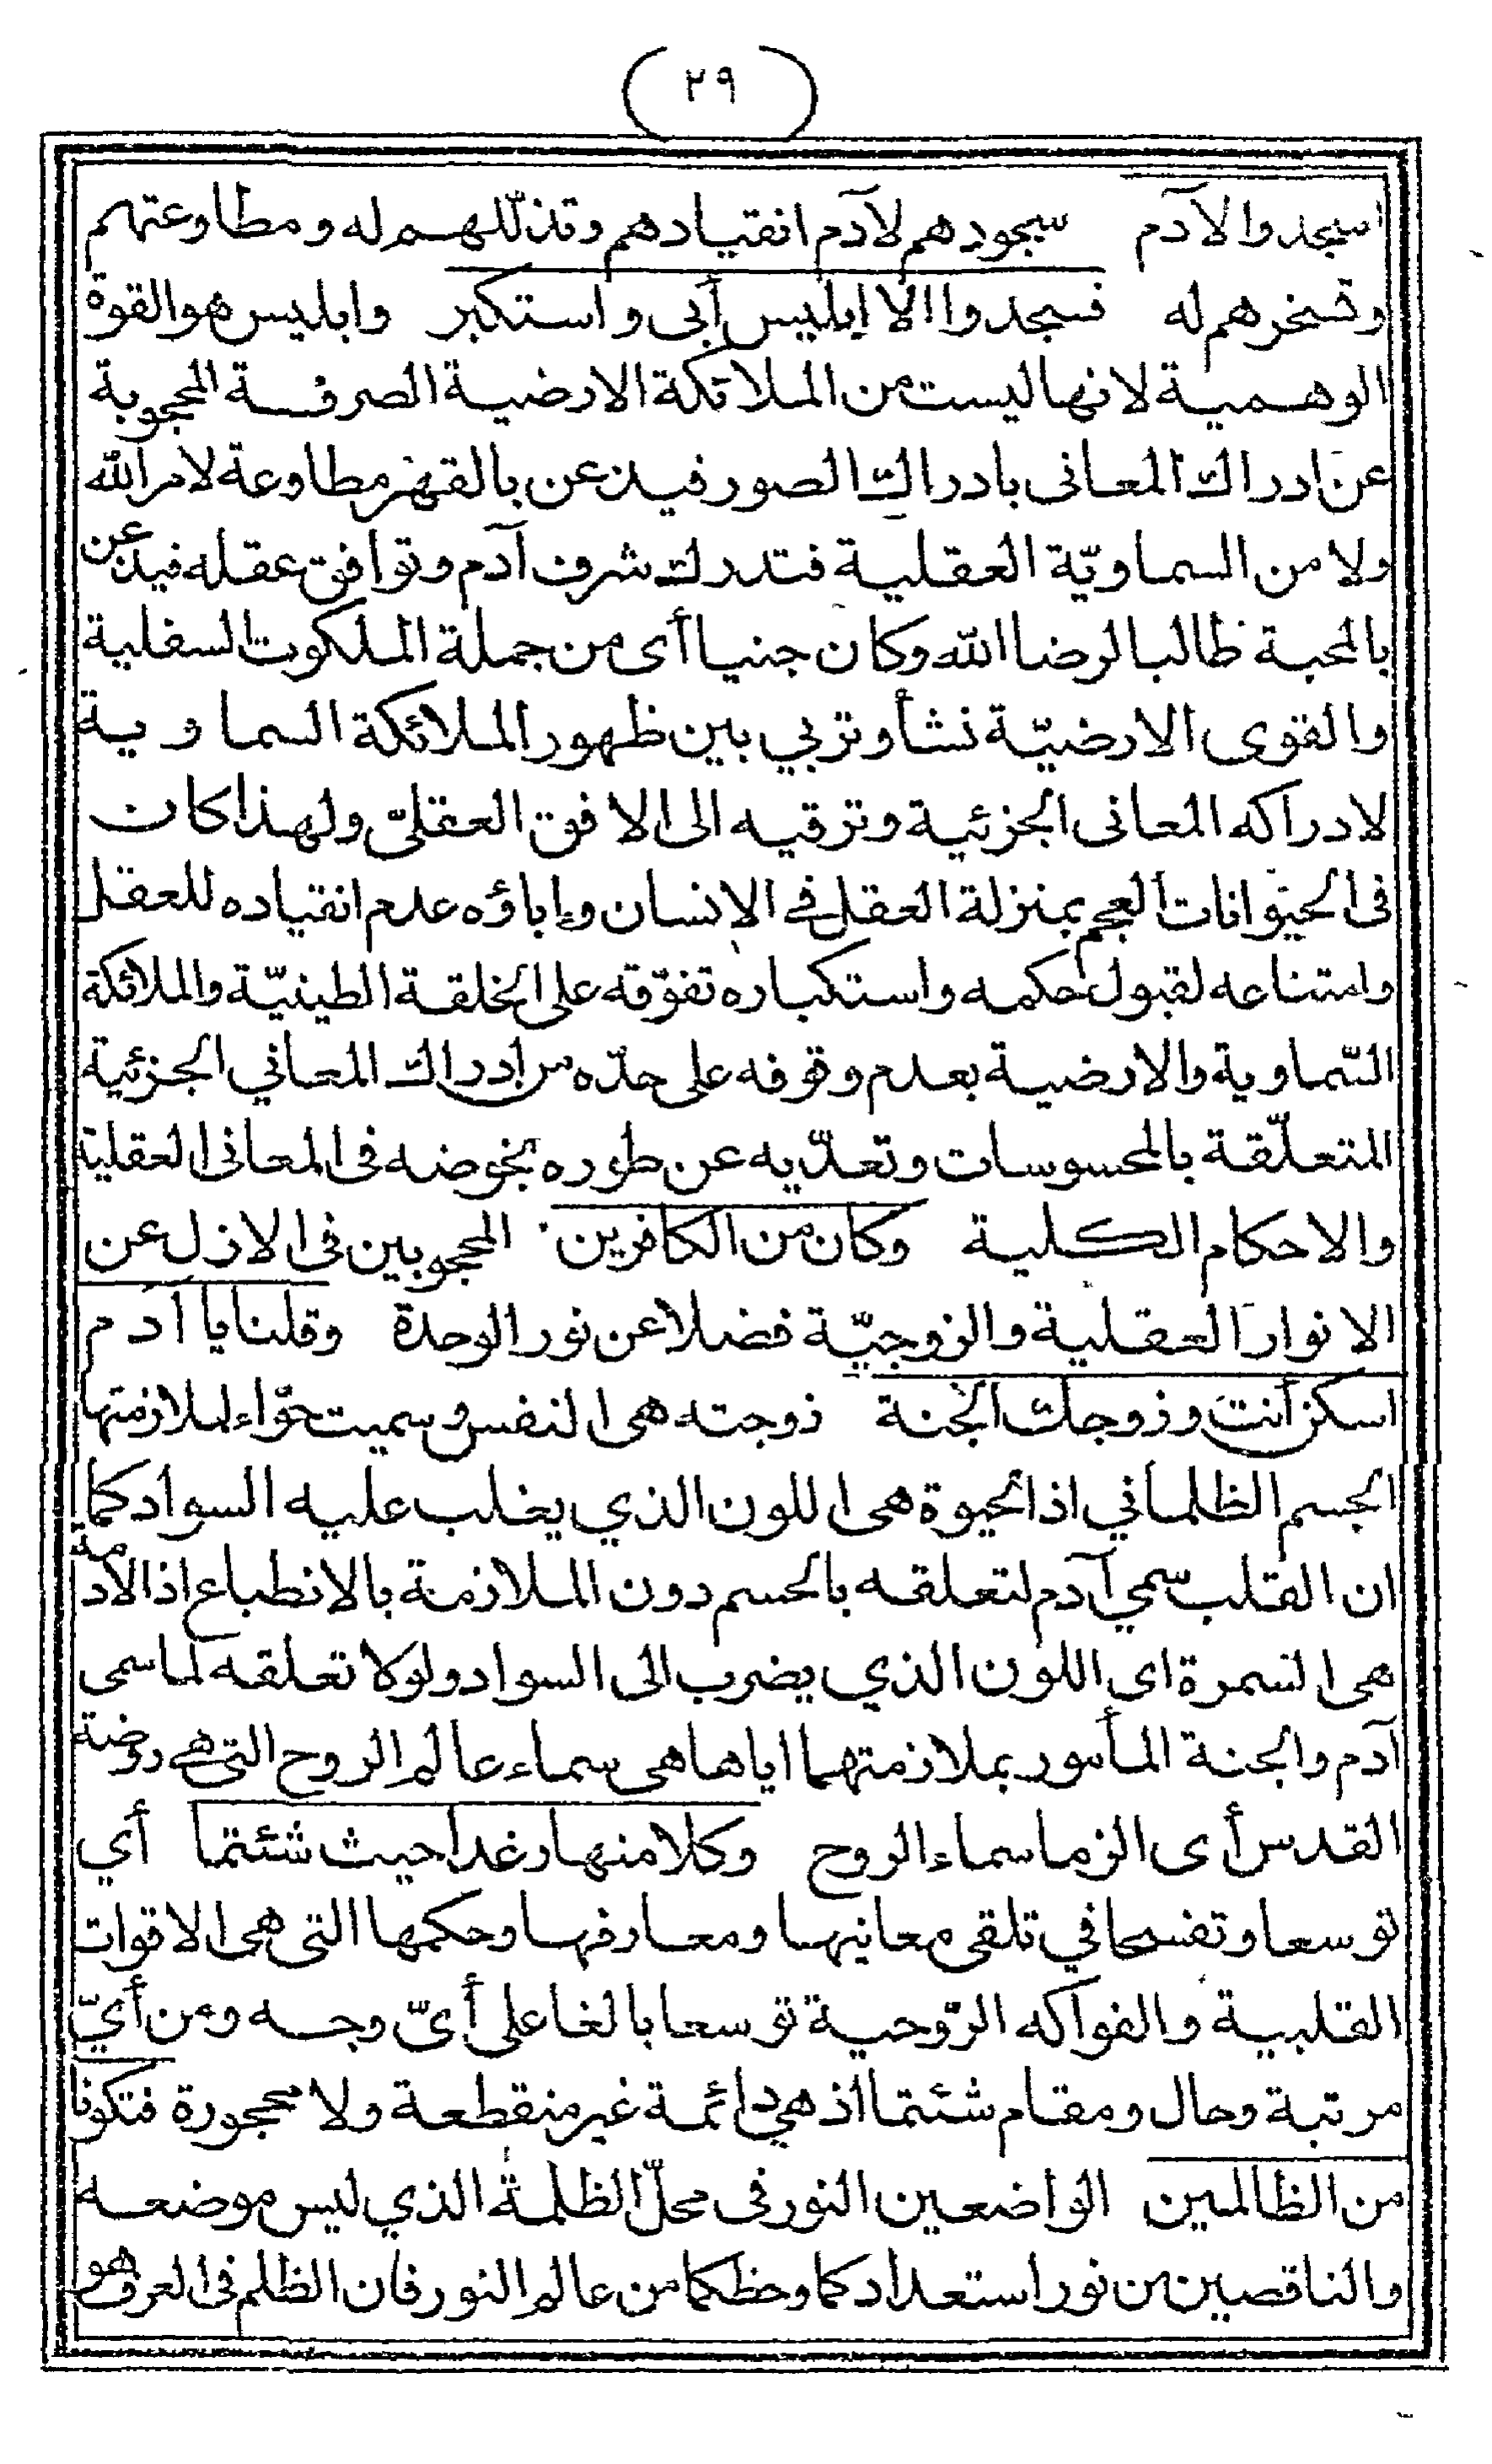 (٢٩)
اسجدوا لآدم سجودهم لآدم انقيادهم وتذلّلهم له ومطاوعتهم
وتسخرهم له فسجدوا الا إبليس أبى واستكبر وابليس هو القوة
الوهمية لانها ليست من الملائكة الارضية الصرفة المحجوبة
عن ادراك المعانى بادراك الصور فيذعن بالقهر مطاوعة لامر الله
ولا من السماويّة العقلية فتدرك شرف آدم وتوافق عقله فيذعن
بالمحبة طالبا لرضا الله وكان جنيا أى من جملة الملكوت السفلية
والقوى الارضيّة نشأ وتربي بين ظهور الملائكة السماوية
لادراكه المعانى الجزئية وترقيه الى الافق العقلىّ ولهذا كان
فى الحيوانات العجم بمنزلة العقل في الإنسان وإباؤه عدم انقياده للعقل
وامتناعه لقبول حكمه واستكباره تفوّقه على الخلقة الطينيّة والملائكة
السّماوية والارضية بعدم وقوفه على حدّه من ادراك المعاني الجزئية
المتعلّقة بالمحسوسات وتعدّيه عن طوره بخوضه فى المعانى العقلية
والاحكام الكلية وكان من الكافرين المحجوبين فى الازل عن
الانوار العقلية والزوجيّة فضلا عن نور الوحدة وقلنا يا آدم
اسكن أنت وزوجك الجنة زوجته هى النفس وسميت حوّاء لملازمتها
الجسم الظلماني اذ الحيوة هى اللون الذي يغلب عليه السواد كما
ان القلب سمي آدم لتعلقه بالجسم دون الملازمة بالانطباع اذ الأدمة
هى السمرة اى اللون الذي يضرب الى السواد ولولا تعلقه لما سمى
آدم والجنة المأمور بملازمتهما اياها هى سماء عالم الروح التى هي روضة
القدس أى الزما سماء الروح وكلا منها رغدا حيث شئتما أي
توسعا وتفسحا في تلقى معانيها ومعارفها وحكمها التى هى الاقوات
القلبية والفواكه الرّوحية توسعا بالغا على أىّ وجه ومن أيّ
مرتبة وحال ومقام شئتما اذ هي دائمة غير منقطعة ولا محجورة فتكونا
من الظالمين الواضعين النور فى محلّ الظلمة الذي ليس موضعه
والناقصين من نور استعدادكما وحظكما من عالم النور فان الظلم فى العرف هو